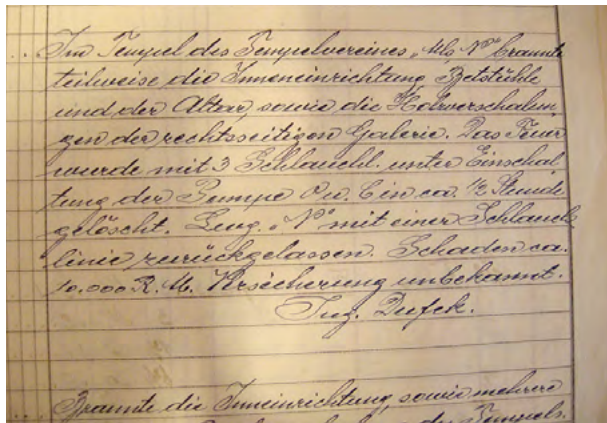 Im Tempel des Tempelvereines, brannte
teilweise die Inneneinrichtung, Betstühle
und der Altar, sowie die Holzverschalun
gen der rechtsseitigen Galerie. Das Feuer
wurde mit 3 Schlauchl. unter Einschal
tung der Pumpe in ca. ½ Stunde
gelöscht. mit einer Schlauch
linie zurückgelassen. Schaden ca.
10.000 R. M. Versicherung unbekannt.
Ing. Dufek.
Brannte die Inneinrichtung, sowie mehrere
des Tempels.